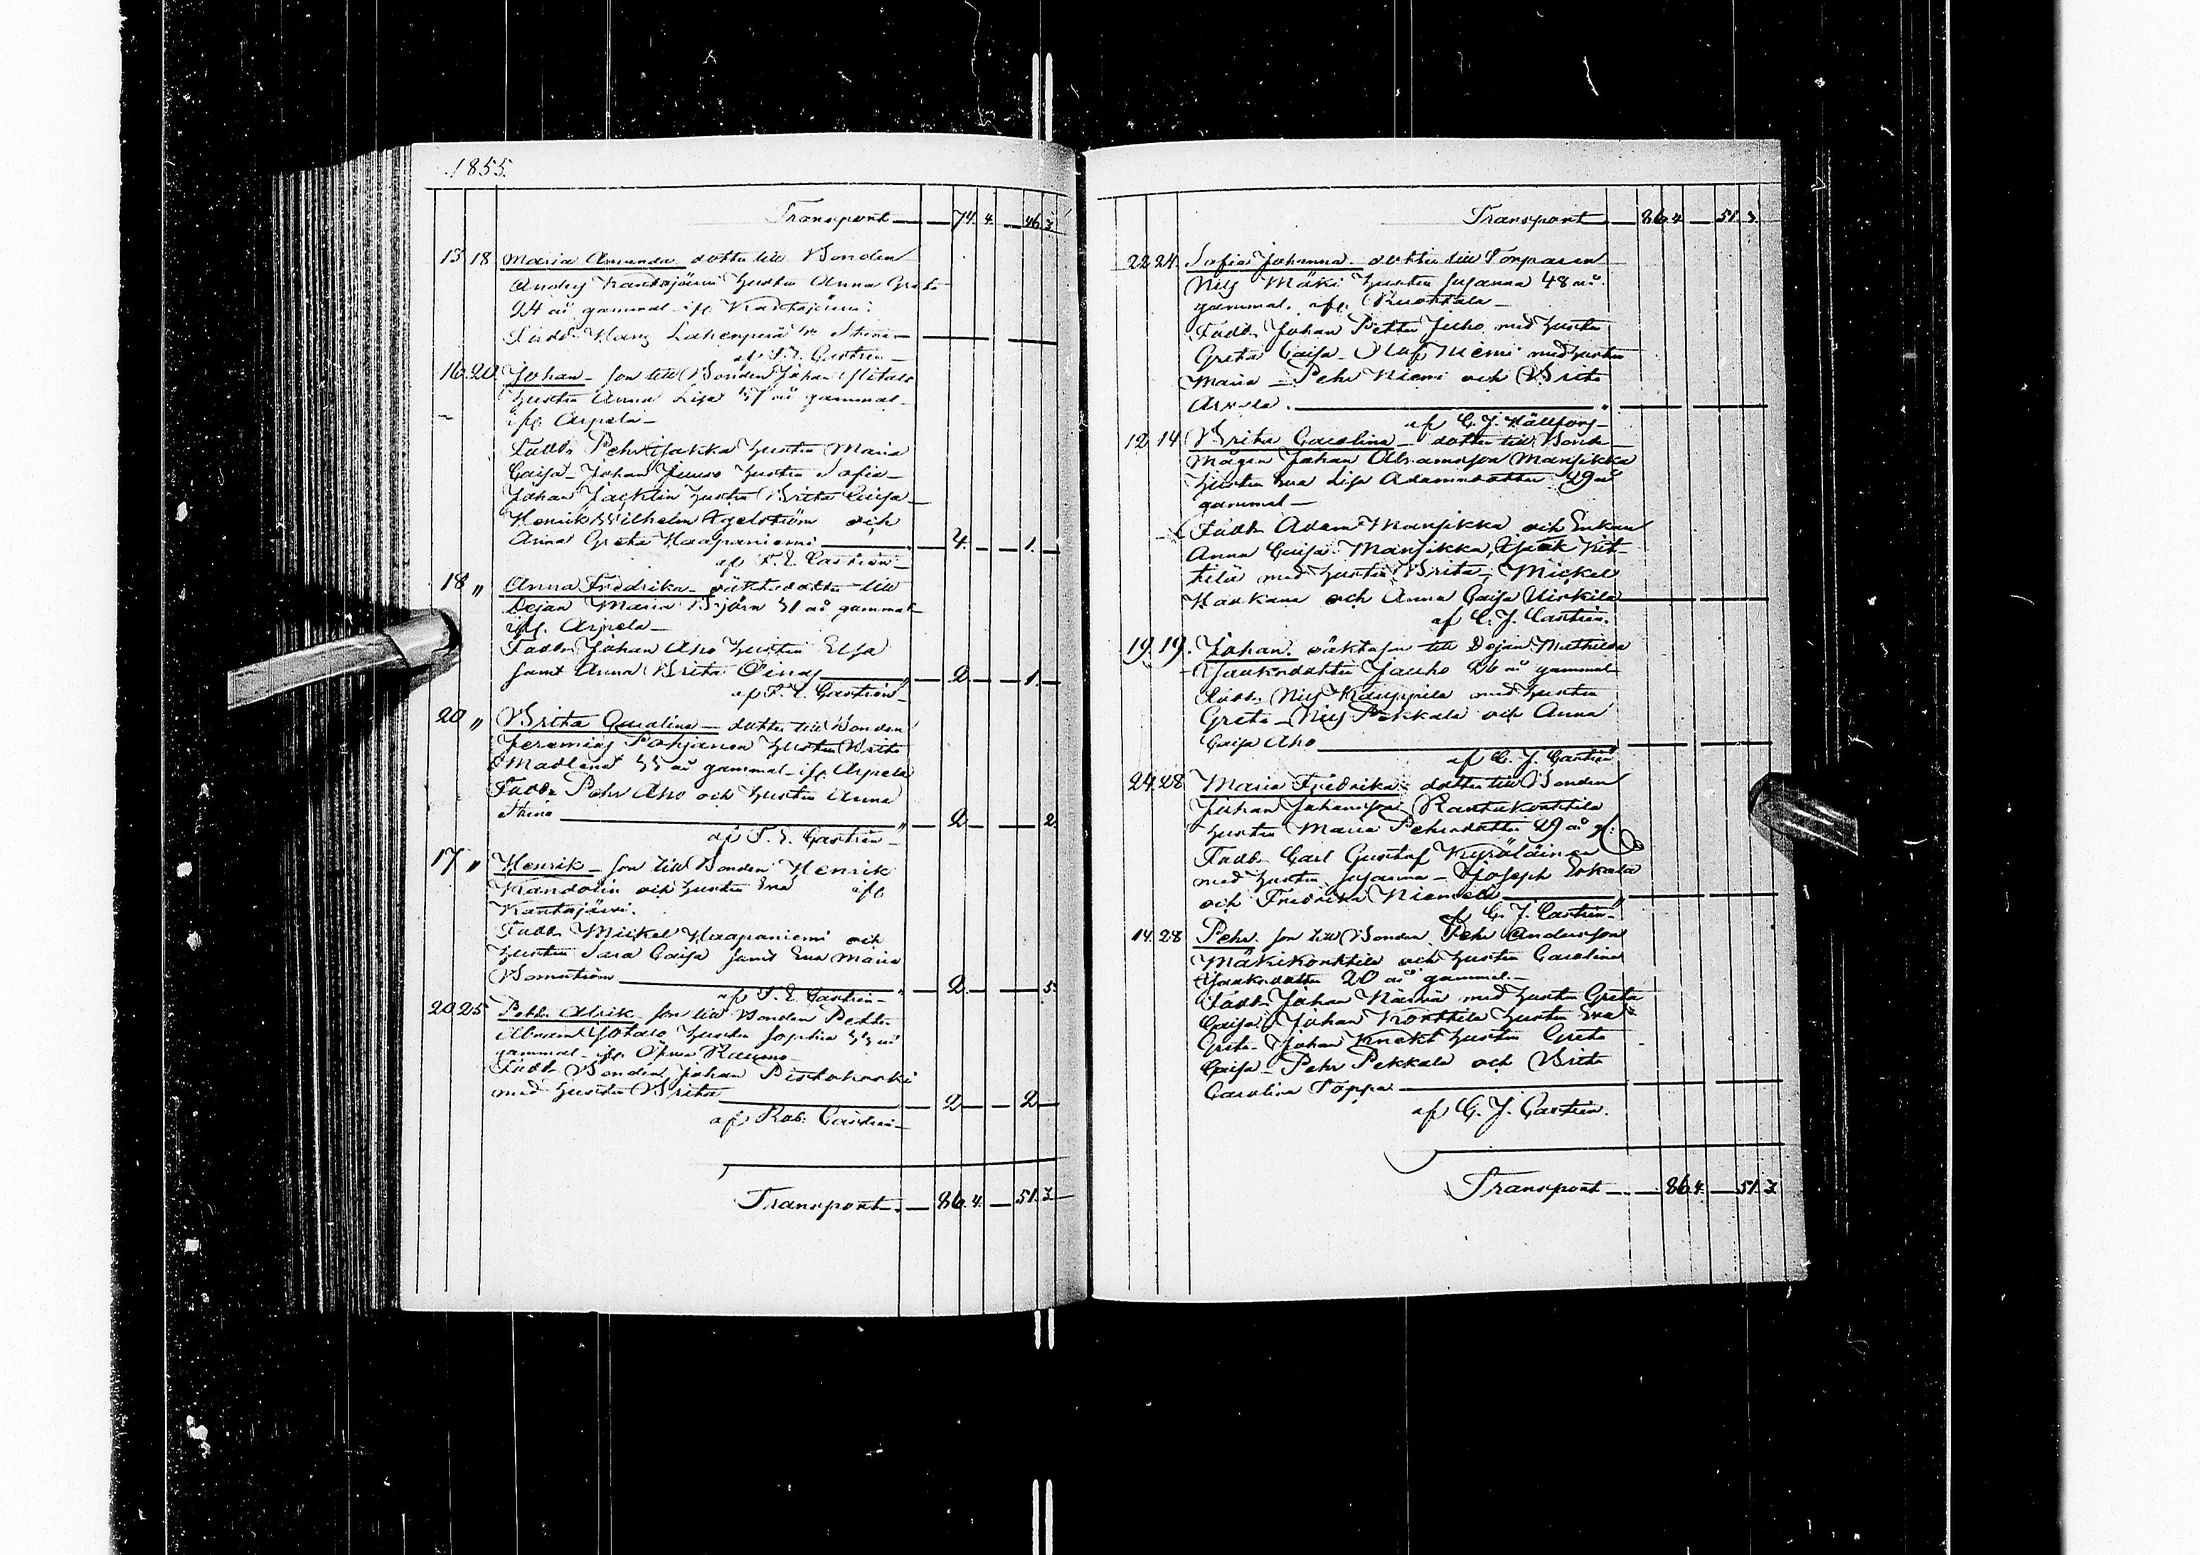 1855.
Transport — 74. 4. — 46. 3.
15 18 Maria Amanda dotter till Bonden
Anders Kantojärvi hustru Anna Greta
24 år gammal ifr. Kantojärvi.
Fadd. Hans Lahenperä Stina
af F. E. Castrén
16. 20. Johan son till Bonden Johan
hustru Anna Lisa 37 år gammal
ifr. Arpela
Fadd. Pehr hustru Maria
Caisa Johan Juuso hustru Sofia
Johan hustru Brita Caisa
Henrik Wilhelm och
Anna Greta Haapaniemi — 4. — 1.
af F. E. Castrén
18 „ Anna Fredrika oäkta dotter till
Pejan Maria Björn 31 år gammal
ifr. Arpela
Fadd. Johan Aho hustru Elsa
samt Anna Brita — 2 — 1.
af F. E. Castrén
20 „ Brita Carolina dotter till Bonden
Jeremias Pohjanen hustru Brita
Madlena 33 år gammal ifr. Arpela
Fadd. Pehr Aho och hustru Anna
Stina — 2 — 2.
af F. E. Castrén
17 „ Henrik son till Bonden Henrik
Kandolin och hustru Eva ifr.
Kantojärvi.
Fadd. Mickel Haapaniemi och
hustru Sara Caisa samt Eva Maria
— 2 — 5.
af F. E. Castrén
20 25 Pett. Ulrik son till Bonden Petter
Abram hustru Sophia 33 år
gammal ifr. Öfver Raumo
Fadd. Bonden Johan
med hustru Brita — 2 — 2
af Rob. Castrén
Transport — 86. 4. — 51. 3
Transport — 86. 4 — 51. 3.
22 24. Sofia Johanna dotter till Torparen
Nils Mäki hustru Susanna 48 år
gammal. ifr. Ruottala
Fadd. Johan Petter Juho med hustru
Greta Caisa Olof Niemi med hustru
Maria Pehr Niemi och Brita
Arpela.
af C. J. Hällfors
12. 14 Brita Carolina dotter till Bonde
Mågen Johan Abramsson Mansikka
hustru Eva Lisa Adamsdotter 29 år
gammal
Fadd. Adam Mansikka och Enkan
Anna Caisa Mansikka, Isak Kit-
tilä med hustru Brita, Mickel
Haukana och Anna Caisa Uirkila
af C. J. Castrén.
19. 19. Johan. oäkta son till Pejan Mathilda
Isaksdotter Jauho 26 år gammal
Fadd. Nils Kauppila med hustru
Greta Nils Pekkala och Anna
Caisa Aho
af C. J. Castrén
24. 28 Maria Fredrika dotter till Bonden
Johan Johansson Rantakorttila
hustru Maria Pehrsdotter 29 år gl.
Fadd. Carl Gustaf Kyröläinen
med hustru Susanna Joseph Erkala
och Fredrika Niemelä
af C. J. Castrén
14. 28 Pehr. son till Bonden Pehr Andersson
Mäkikorttila och hustru Carolina
Isaksdotter 20 år gammal.
Fadd. Johan med hustru Greta
Caisa, Johan Korttila hustru Eva
Greta Johan Knekt hustru Greta
Caisa Pehr Pekkala och Brita
Carolina Poppa
af C. J. Castrén.
Transport — 86. 4. — 51. 3.